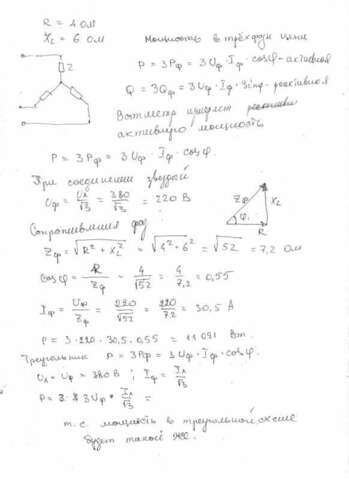 R = 4 Ом
XL = 6 Ом
Мощность в трёхфазн цепи
Z
P = 3Pф = 3Uф · Iф · cosφ - активная
Q = 3Qф = 3Uф · Iф · sinφ - реактивная
Ваттметр измеряет
активную мощность
P = 3Pф = 3Uф · Iф cosφ.
При соединении звездой
Uф = Uл/√3 = 380/√3 = 220 В
Zф XL
φ
R
Сопротивления фаз
Zф = √R² + XL² = √4² · 6² = √52 = 7,2 Ом
cosφ = R/Zф = 4/√52 = 4/7,2 = 0,55
Iф = Uф/Zф = 220/√52 = 220/7,2 = 30,5 А
P = 3 · 220 · 30,5 · 0,55 = 11 071 Вт.
Треугольник P = 3Pф = 3Uф · Iф · cosφ.
Uл = Uф = 380 В ; Iф = Iл/√3
P = 3 · 3Uф * Iл/√3 =
т.е. мощность в треугольной схеме
будет такой же.